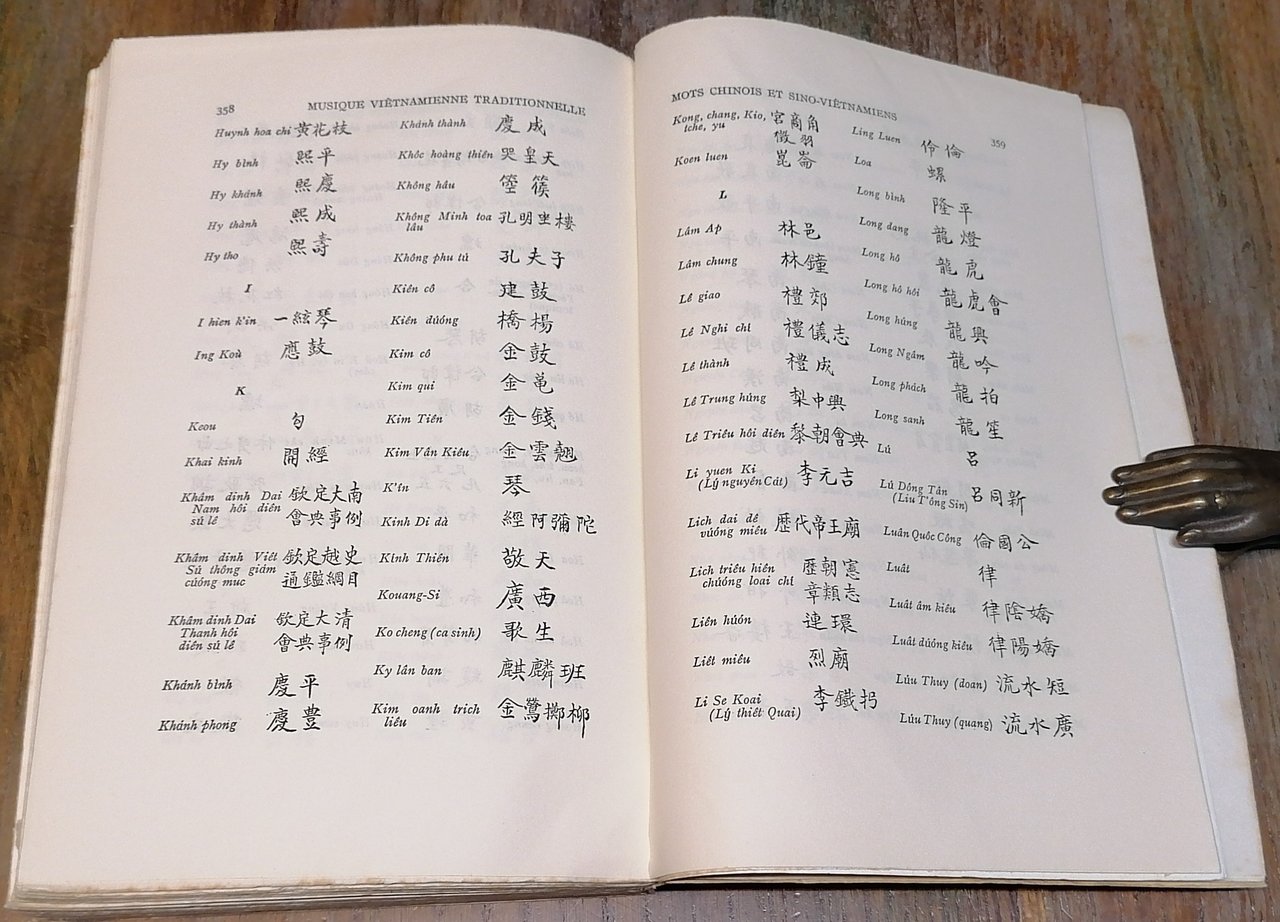 358 MUSIQUE VIÊTNAMIENNE TRADITIONNELLE
Huynh hoa chi 黃花枝
Hy bình 熙平
Hy khánh 熙慶
Hy thành 熙成
Hy tho 熙壽
I
I hien k'in 一絃琴
Ing Koù 應鼓
K
Keou 勾
Khai kinh 開經
Khâm dinh Dai 欽定大南
Nam hôi diên 會典事例
sú lê
Khâm dinh Viêt 欽定越史
Sú thông giám 通鑑綱目
cúóng muc
Khâm dinh Dai 欽定大清
Thanh hôi 會典事例
diên sú lê
Khánh bình 慶平
Khánh phong 慶豊
Khánh thành 慶成
Khóc hoàng thiên 哭皇天
Không hâu 箜篌
Không Minh toa 孔明坐樓
lâu
Không phu tú 孔夫子
Kiên cô 建鼓
Kiên dúóng 橋楊
Kim cô 金鼓
Kim qui 金
Kim Tiên 金錢
Kim Vân Kiêu 金雲翹
K'in 琴
Kinh Di dà 經阿彌陀
Kính Thiên 敬天
Kouang-Si 廣西
Ko cheng (ca sinh) 歌生
Ky lân ban 麒麟班
Kim oanh trich 金鶯擲柳
liêu
MOTS CHINOIS ET SINO-VIÊTNAMIENS 359
Kong, chang, Kio, 宮商角
tche, yu 徵羽
Koen luen 崑崙
L
Lâm Ap 林邑
Lâm chung 林鐘
Lê giao 禮郊
Lê Nghi chí 禮儀志
Lê thành 禮成
Lê Trung húng 梨中興
Lê Triêu hôi diên 黎朝會典
Li yuen Ki 李元吉
(Lý nguyên Cát)
Lich dai dê 歷代帝王廟
vúóng miêu
Lich triêu hiên 歷朝憲
chúóng loai chí 章類志
Liên húón 連環
Liêt miêu 烈廟
Li Se Koai 李鐵拐
(Lý thiêt Quai)
Ling Luen 伶倫
Loa 螺
Long bình 隆平
Long dang 龍燈
Long hô 龍虎
Long hô hôi 龍虎會
Long húng 龍興
Long Ngâm 龍吟
Long phách 龍拍
Long sanh 龍笙
Lú 呂
Lú Dông Tân 呂同新
(Liu T'ông Sin)
Luân Quôc Công 倫國公
Luât 律
Luât âm kiêu 律陰嬌
Luât dúóng kiêu 律陽嬌
Lúu Thuy (doan) 流水短
Lúu Thuy (quang) 流水廣